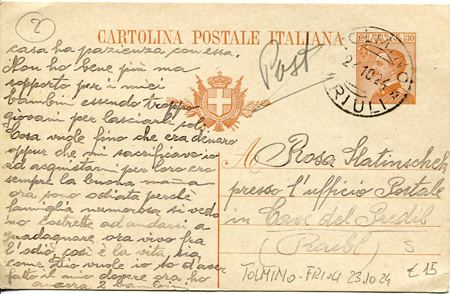 2
CARTOLINA POSTALE ITALIANA
casa ha pazienza con essa.
Non ho bene più ma
sopporto per i miei
bambini essendo troppo
giovani per lasciarle soli
Cosa vuole fino che era denaro
oppur che mi sacrificavo io
ad acquistarne per loro era
sempre la buona mama
ora sono odiata perchè
famiglia numerosa si vedo
no costrette ad andarsi a
guadagnare ora vivo fra
l'odio, così è la vita, ma
come Dio vuole io so d'aver
fatto il mio dovere ora ho
ancora 2 bambini
Post
TOLMINO
2 10 24
FRIULI
Rosa Slatinschek
presso l'ufficio Postale
in Cave del Predil
(Raibl)
S
TOLMINO - FRIULI 23.10.24
£ 15